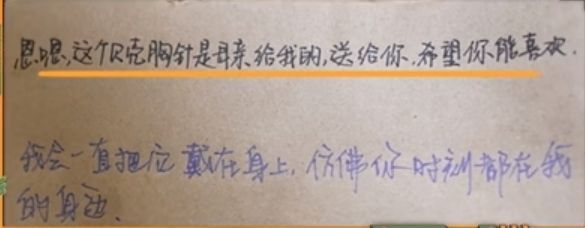 恩恩,这个贝壳胸针是母亲给我的,送给你,希望你能喜欢.
我会一直把它戴在身上,仿佛你时刻都在我
的身边.